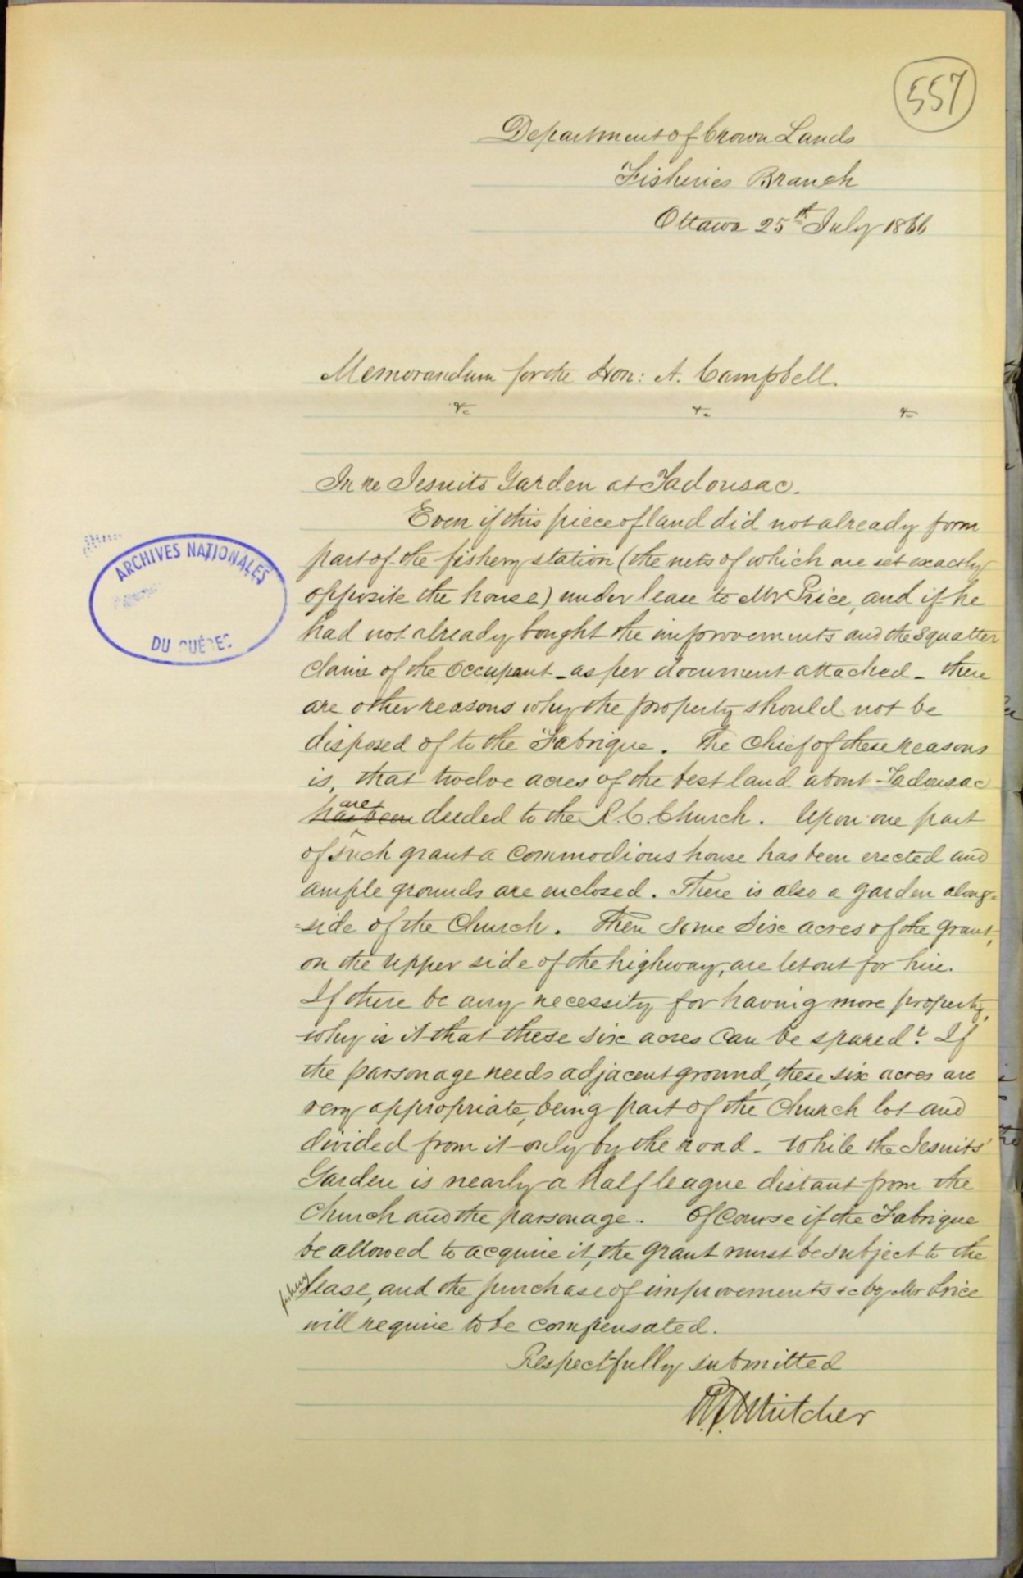 557
Department of Crown Lands
Fisheries Branch
Ottawa 25th July 1866
Memorandum for the Hon: A. Campbell.
&c &c &c
In re Jesuits Garden at Tadousac.
Even if this piece of land did not already form
part of the fishery station (the nets of which are set exactly
opposite the house) under lease to Mr Price, and if he
had not already bought the improvements and the squatter
claim of the occupant - as per document attached - there
are other reasons why the property should not be
disposed of to the Fabrique. The chief of these reasons
is, that twelve acres of the best land about Tadousac
are
has been deeded to the R.C. Church. Upon one part
of such grant a commodious house has been erected and
ample grounds are enclosed. There is also a garden along=
=side of the Church. Then some six acres of the grant,
on the upper side of the highway, are let out for hire.
If there be any necessity for having more property,
why is it that these six acres can be spared? If
the parsonage needs adjacent ground, these six acres are
very appropriate, being part of the Church lot and
divided from it only by the road - while the Jesuits'
Garden is nearly a half league distant from the
Church and the parsonage. Of course if the Fabrique
be allowed to acquire it, the grant must be subject to the
fishery lease, and the purchase of improvements &c by Mr Price
will require to be compensated.
Respectfully submitted
W.F. Whitcher
ARCHIVES NATIONALES
DU QUÉBEC